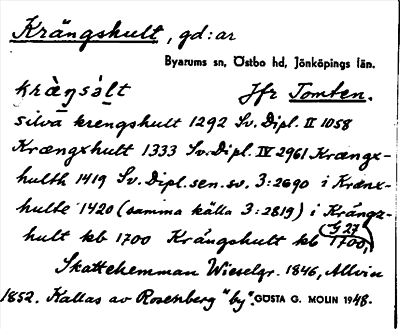 Krängshult, gd:ar
Byarums sn, Östbo hd, Jönköpings län.
kràŋsàlt Jfr Tomten.
silva krengshult 1292 Sv. Dipl. II 1058
Krængxhult 1333 Sv. Dipl. IV 2961 Krængx-
hulth 1419 Sv. Dipl. sen. sv. 3:2690 i Krænx-
hulte 1420 (samma källa 3:2819) i Krängz-
hult kb 1700 Krångshult kb 1700,
G 27
Skattehemman Wieselgr. 1846, Allvin
1852. Kallas av Rosenberg "by". GÖSTA G. MOLIN 1948.